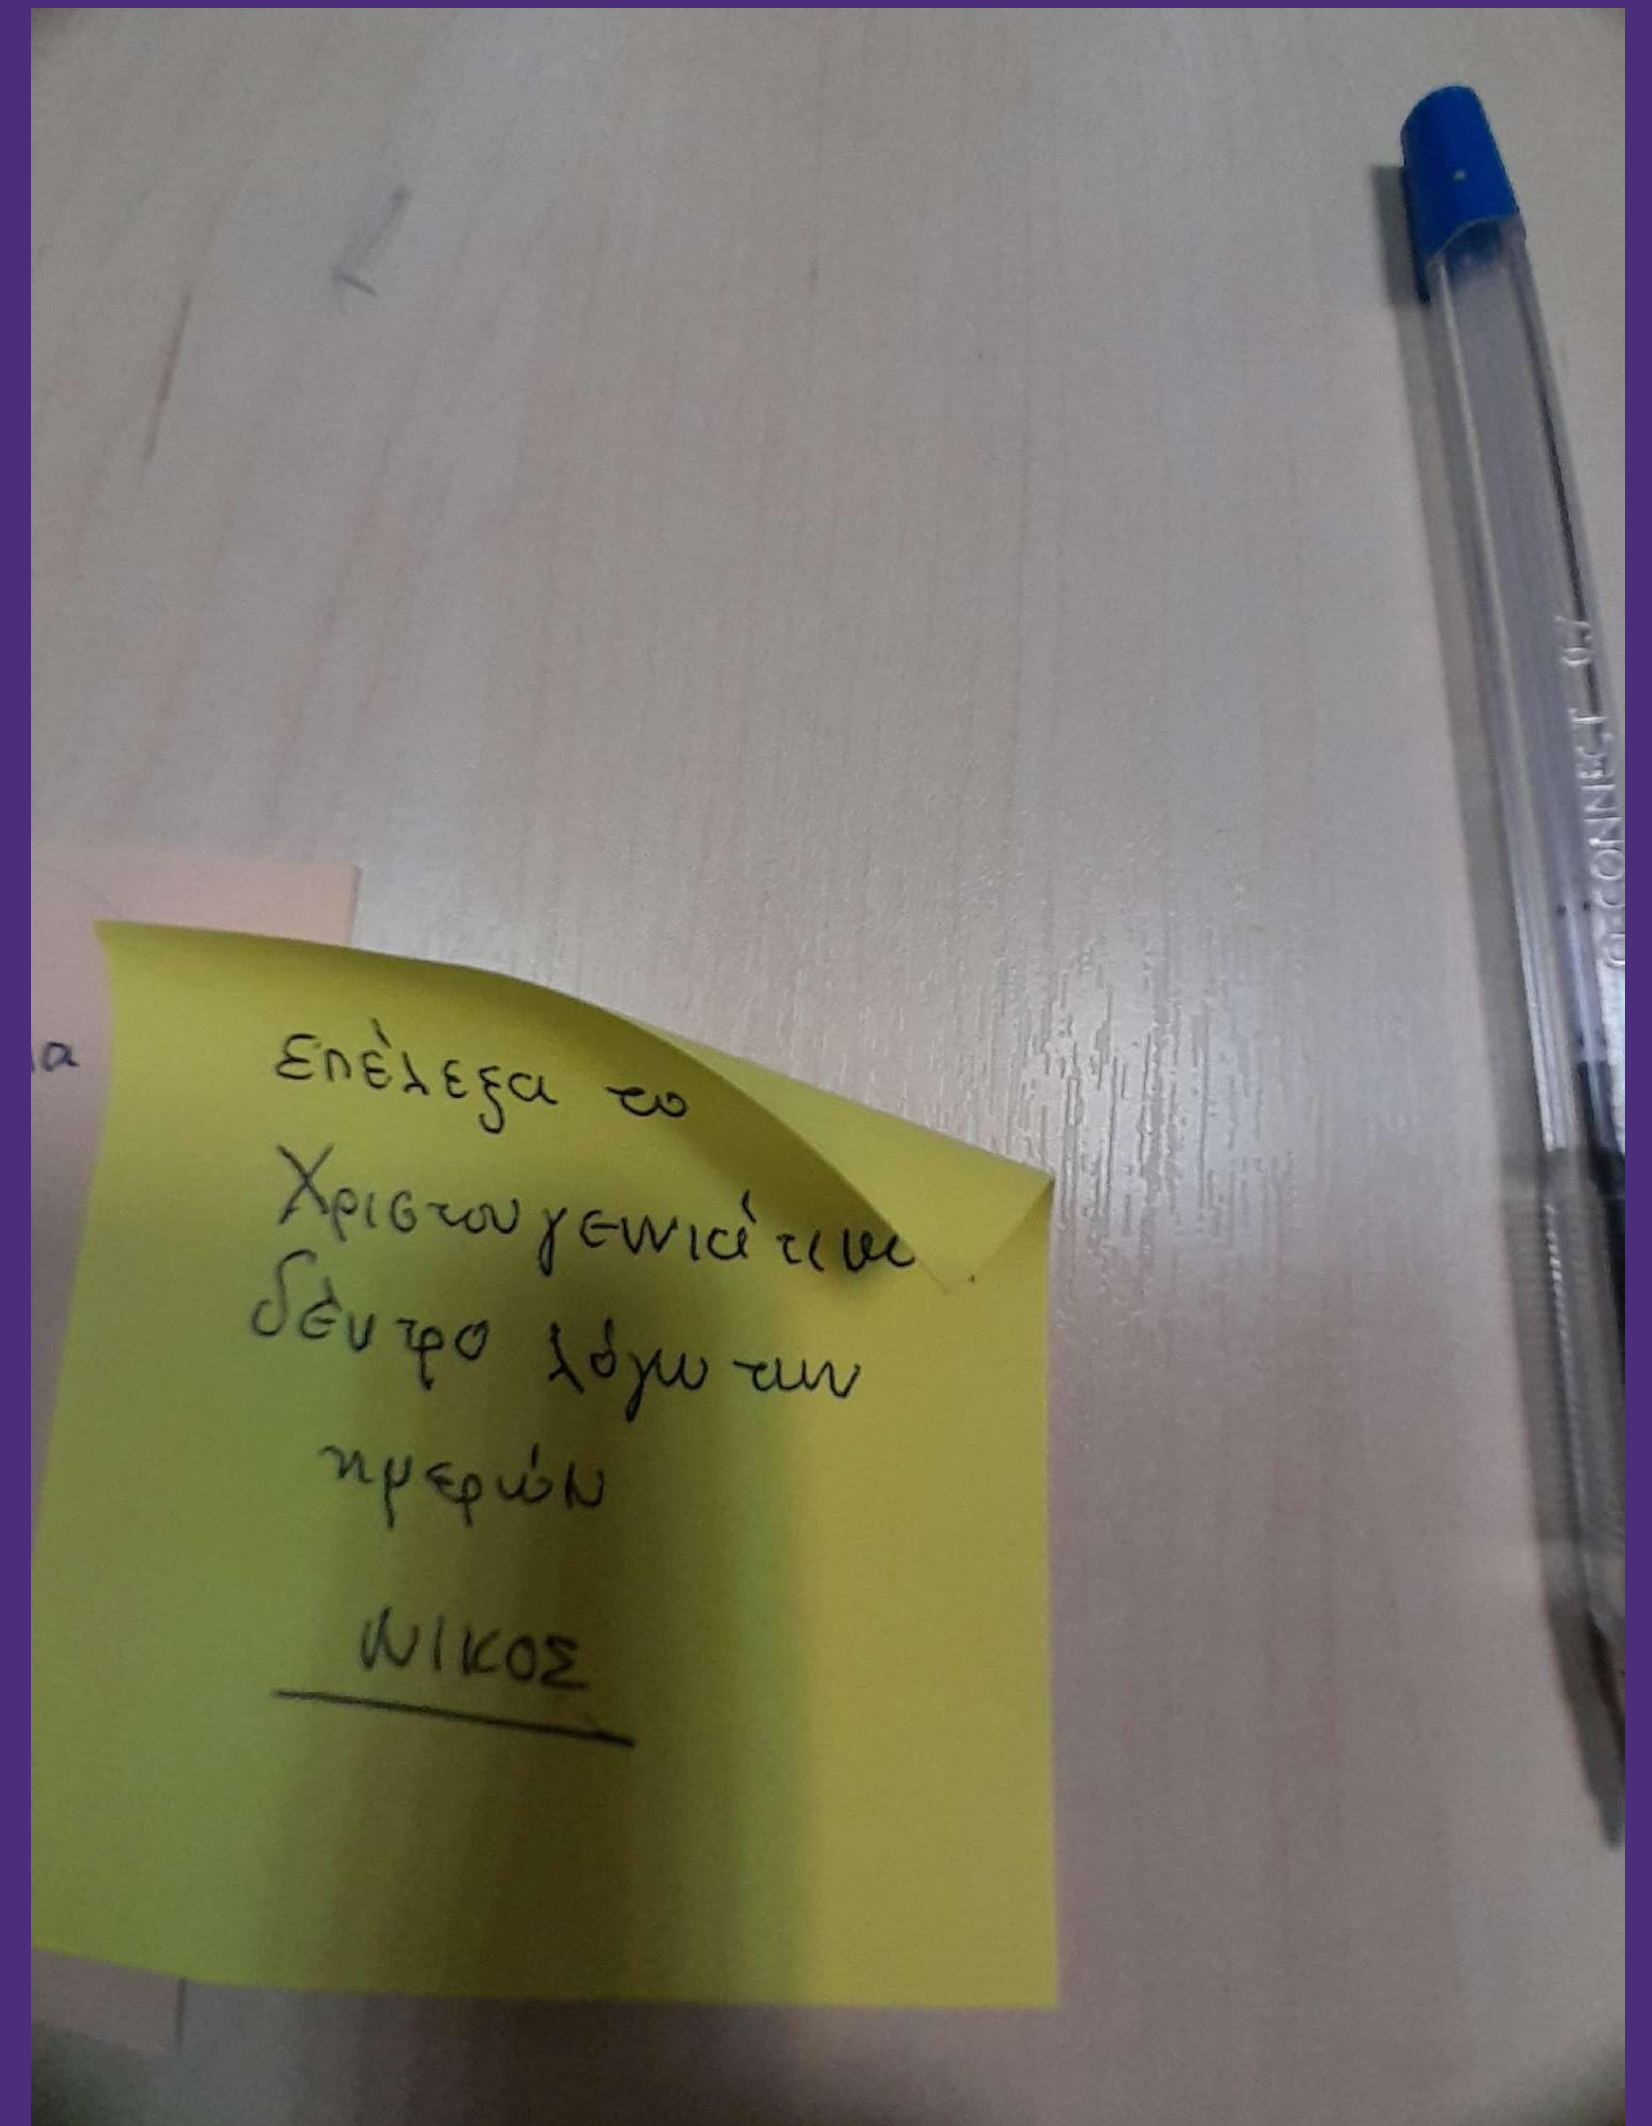 ια
επέλεξα το
Χριστουγεννιάτικο
δέντρο λόγω των
ημερών
ΝΙΚΟΣ
Q-CONNECT 0.7